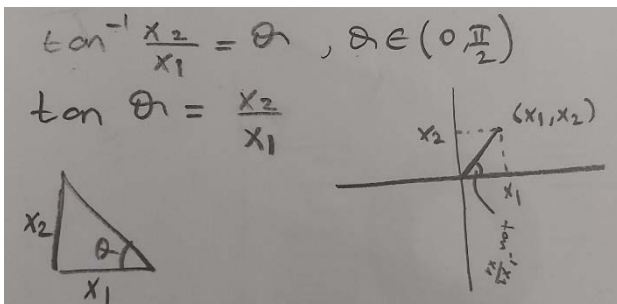 tan⁻¹ x₂/x₁ = θ , θ ∈ (0, π/2)
tan θ = x₂/x₁
x₂
θ
x₁
(x₁, x₂)
x₂
x₁
tan⁻¹ x₂/x₁